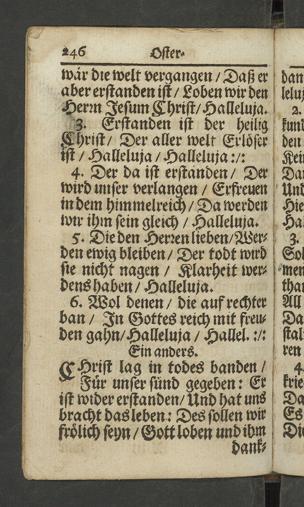 246 Oster-
wär die welt vergangen / Daß er
aber erstanden ist / Loben wir den
Herrn Jesum Christ / Halleluja.
3. Erstanden ist der heilig
Christ / Der aller welt Erlöser
ist / Halleluja / Halleluja :/:
4. Der da ist erstanden / Der
wird unser verlangen / Erfreuen
in dem himmelreich / Da werden
wir ihm sein gleich / Halleluja.
5. Die den Herren lieben / Wer-
den ewig bleiben / Der todt wird
sie nicht nagen / Klarheit wer-
dens haben / Halleluja.
6. Wol denen / die auf rechter
ban / In Gottes reich mit freu-
den gahn / Halleluja / Hallel. :/:
Ein anders.
CHrist lag in todes banden /
Für unser sünd gegeben : Er
ist wider erstanden / Und hat uns
bracht das leben : Des sollen wir
frölich seyn / Gott loben und ihm
dank-
dan
lelu
2.
den
Kei
Da
Und
Hie
Ha
3.
Sol
men
tha
All
Da
stal
ren
4.
krie
Da
Es
Die